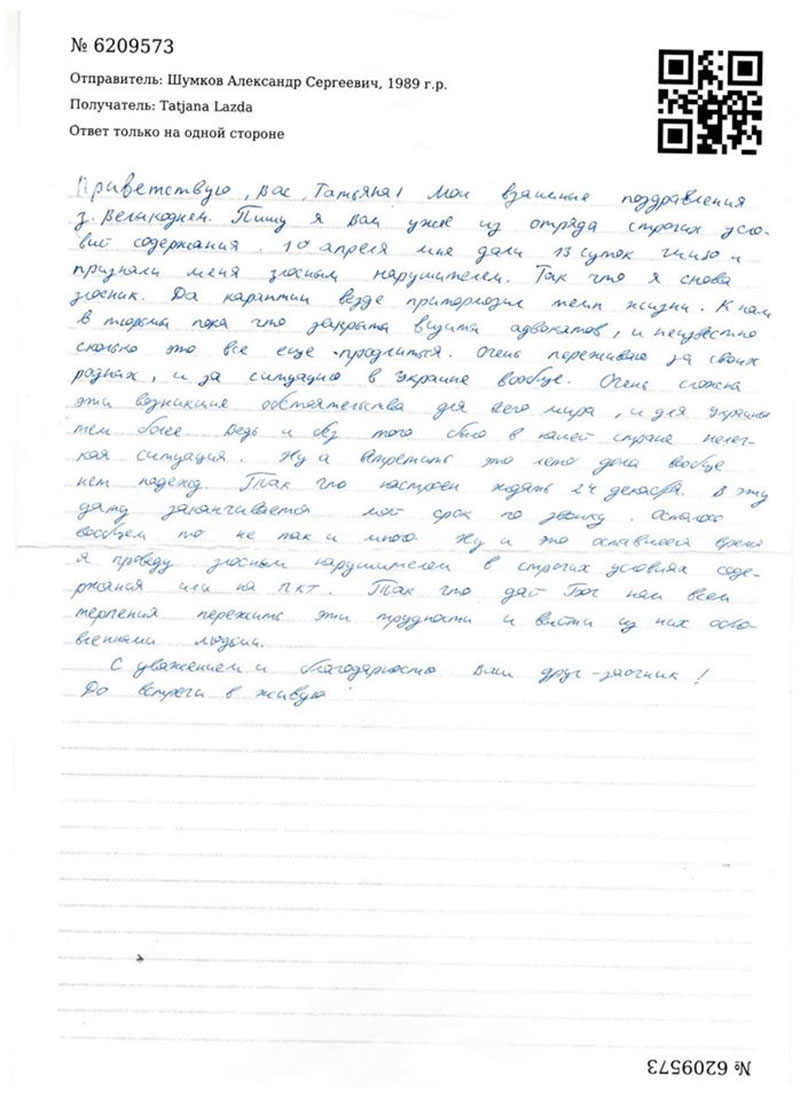 № 6209573
Отправитель: Шумков Александр Сергеевич, 1989 г.р.
Получатель: Tatjana Lazda
Ответ только на одной стороне
Приветствую, Вас, Татьяна! Мои взаимные поздравления
з Велыкоднем. Пишу я Вам уже из отряда строгих усло-
вий содержания. 10 апреля мне дали 13 суток шизо и
признали меня злосным нарушителем. Так что я снова
злосник. Да карантин везде притормозил темп жизни. К нам
в тюрьмы пока что закрыты визиты адвокатов, и неизвестно
сколько это все еще продлиться. Очень переживаю за своих
родных, и за ситуацию в Украине вообще. Очень сложна
эти возникшие обстоятельства для всего мира, и для Украины
тем более. Ведь и без того было в нашей стране нелег-
кая ситуация. Ну а встретить это лето дома вообще
нет надежд. Так что настроен ждать 24 декабря. В эту
дату заканчивается мой срок по звонку. Осталось
вообщем то не так и много. Ну и это оставшееся время
я проведу злосным нарушителем в строгих условиях соде-
ржания или на ПКТ. Так что дай Бог нам всем
терпения пережить эти трудности и выйти из них обно-
вленными людьми.
С уважением и благодарностью Ваш друг-заочник!
До встречи в живую
№ 6209573